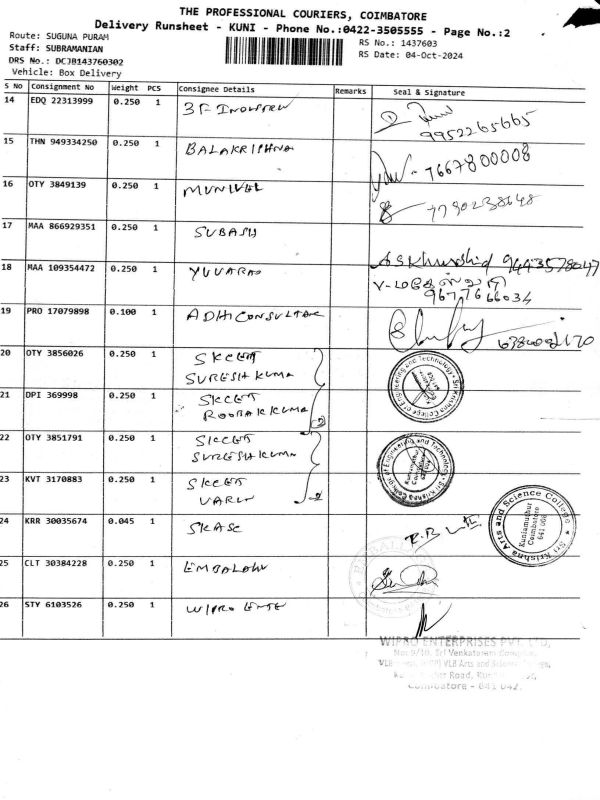 THE PROFESSIONAL COURIERS, COIMBATORE
Delivery Runsheet - KUNI - Phone No.:0422-3505555 - Page No.:2
Route: SUGUNA PURAM
RS No.: 1437603
Staff: SUBRAMANIAN
RS Date: 04-Oct-2024
DRS No.: DCJB143760302
Vehicle: Box Delivery
S No Consignment No Weight PCS Consignee Details Remarks Seal & Signature
14 EDQ 22313999 0.250 1 3F
9952265665
15 THN 949334250 0.250 1 BALAKRISHNA
7667800008
16 OTY 3849139 0.250 1 MUNIVEL
7790238648
17 MAA 866929351 0.250 1 SUBASH
ASKhurshid 9443578047
18 MAA 109354472 0.250 1 YUVARAJ
9677766034
19 PRO 17079898 0.100 1 ADHI CONSULTANC
20 OTY 3856026 0.250 1 SKCET
SURESH KUMA
Sri Krishna College of Engineering and Technology
21 DPI 369998 0.250 1 SKCET
ROOBAK KUMA
22 OTY 3851791 0.250 1 SKCET
SURESH KUMA
Sri Krishna College of Engineering and Technology
Kuniamuthur
Coimbatore
23 KVT 3170883 0.250 1 SKCET
VARUN
24 KRR 30035674 0.045 1 SKASC
Sri Krishna Arts and Science College
Kuniamuthur
Coimbatore
641 008
25 CLT 30384228 0.250 1
26 STY 6103526 0.250 1 WIPRO ENTE
WIPRO ENTERPRISES PVT. LTD,
No: 9/10, Sri Venkataram Complex,
VLB Arts and Science College,
Road,
Coimbatore - 641 042.